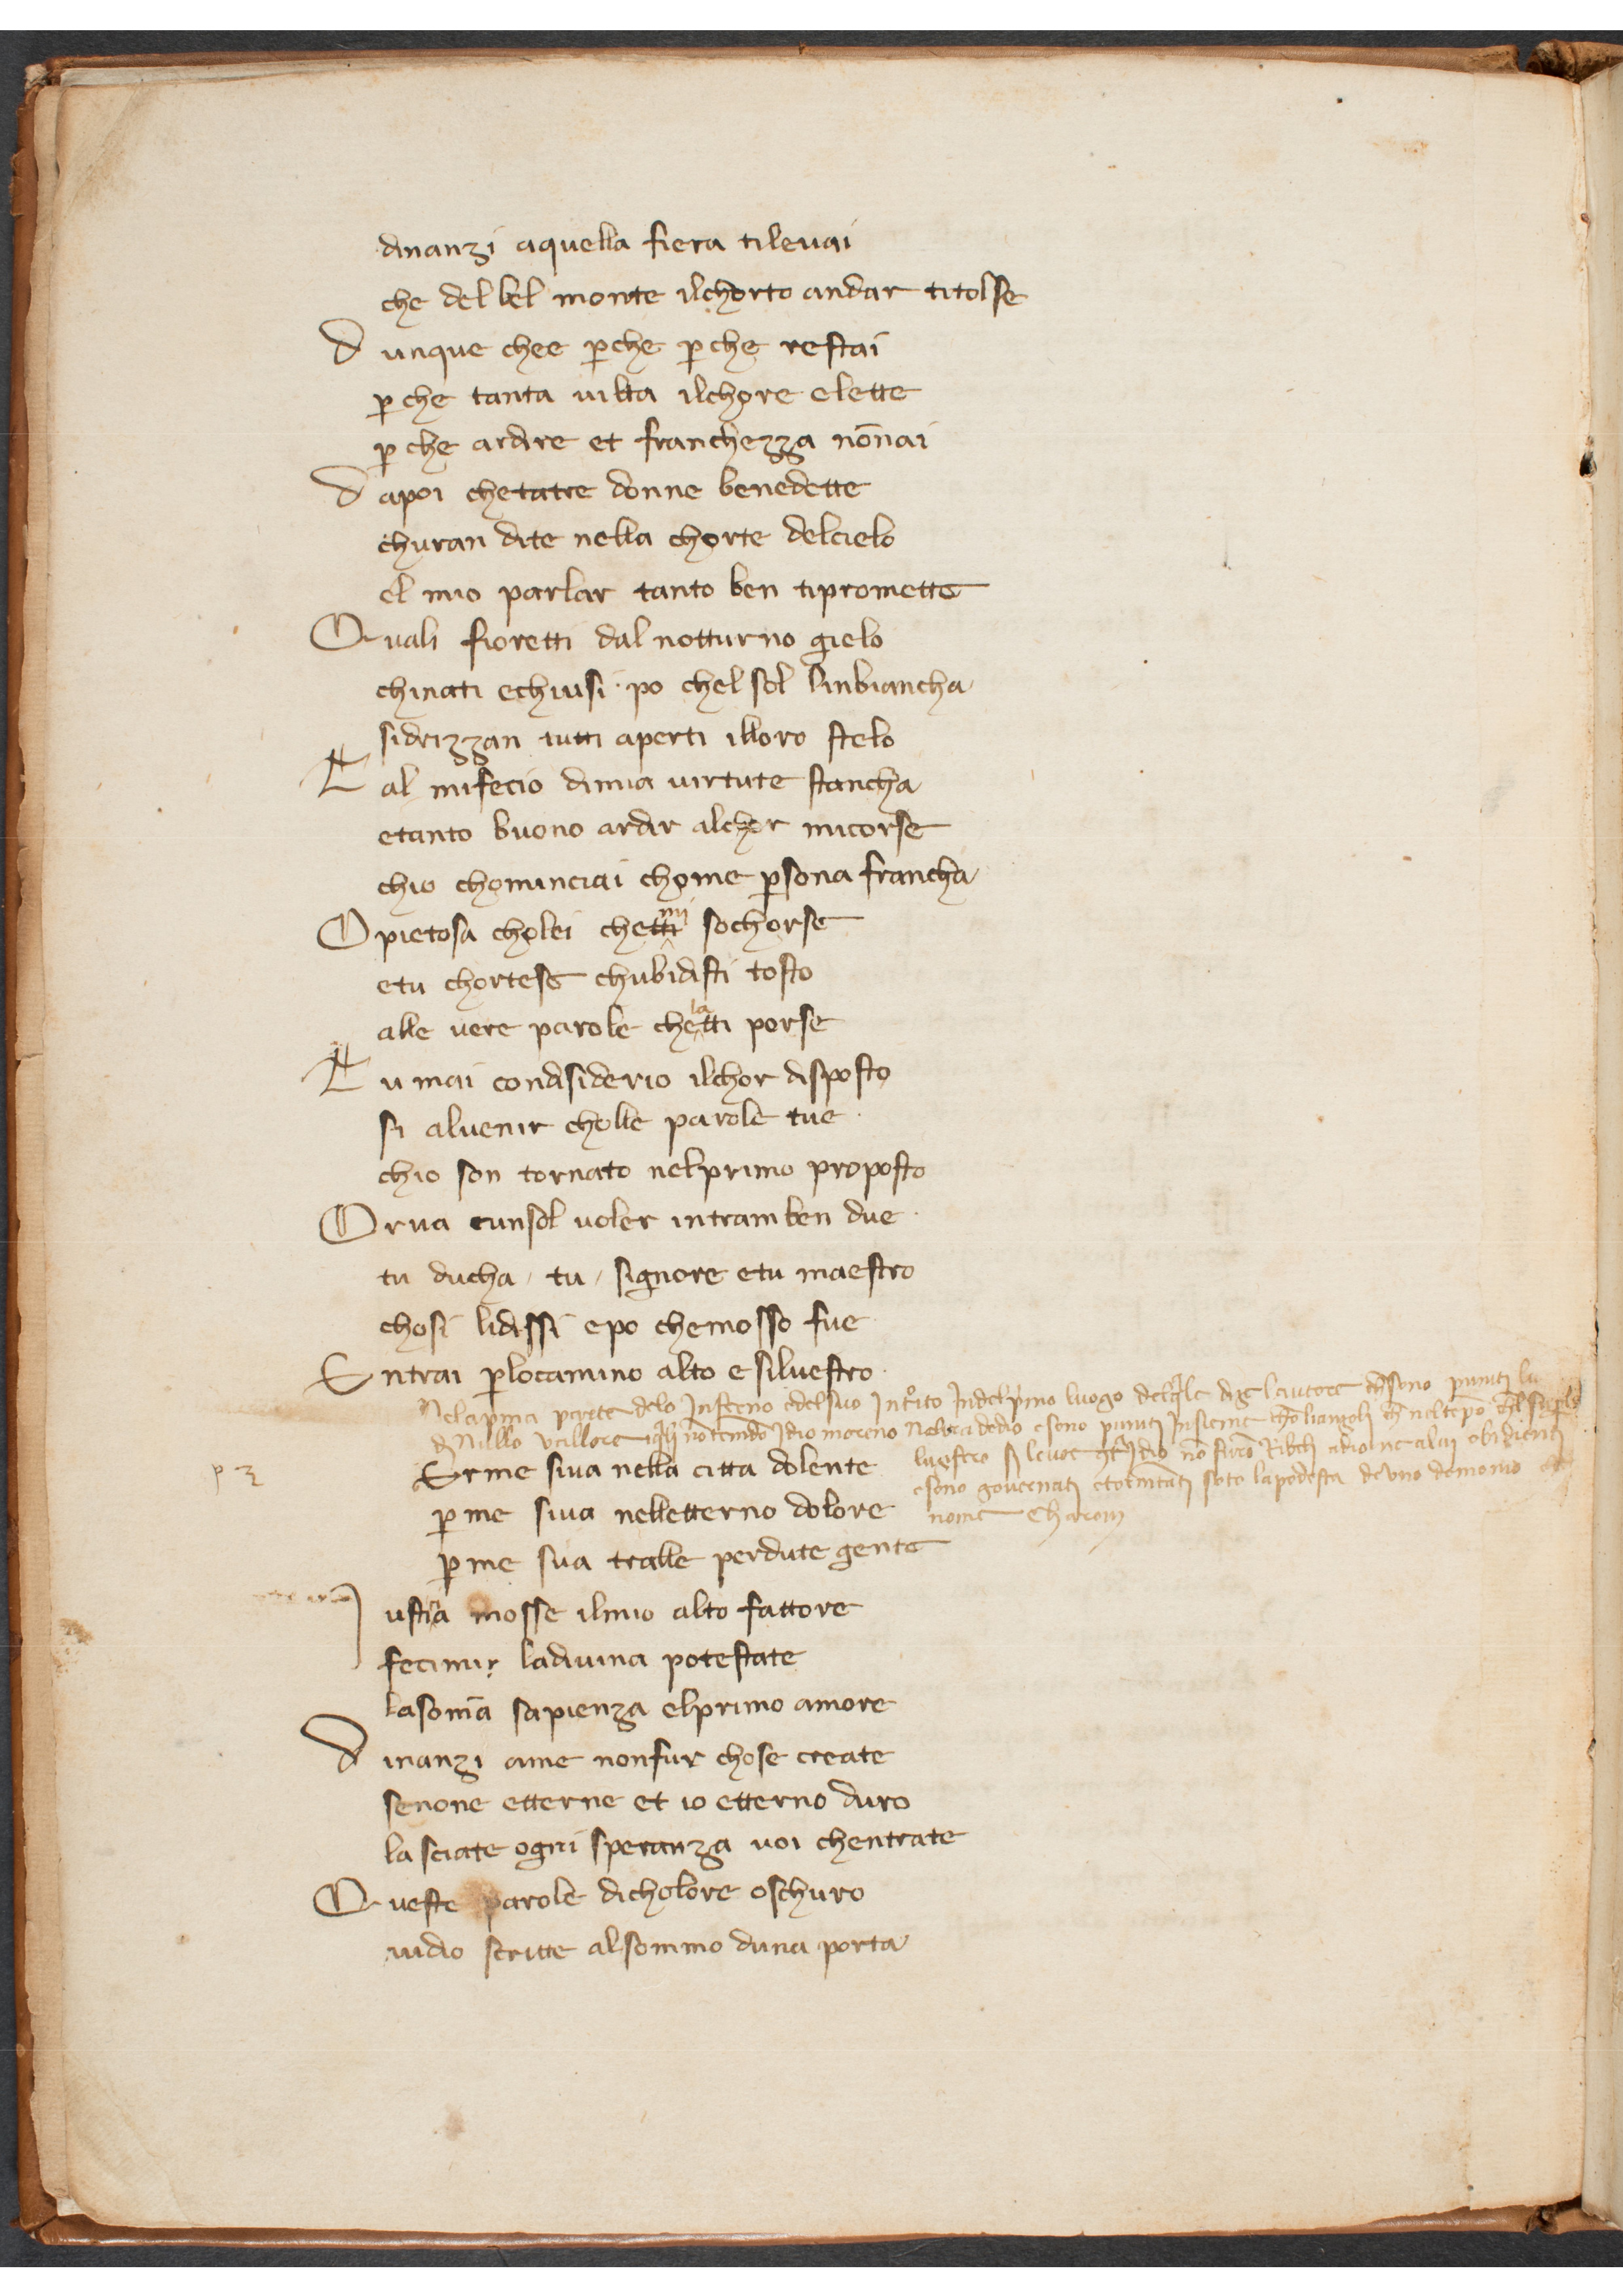 dinanzi aquella fiera tileuai
che del bel monte ilchorto andar titolse
D unque chee ꝑche ꝑche restai
ꝑche tanta uilta ilchore elette
ꝑche ardire et franchezza nōnai
D apoi chetatre donne benedette
churan dite nella chorte delcielo
el mio parlar tanto ben tipromette
Q uali fioretti dal notturno gielo
chinati echiusi · po chel sol linbiancha
sidrizzan tutti aperti illoro stelo
T al mifecio dimia uirtute stancha
etanto buono ardir alchor micorse
chio chominciai chome ꝑsona francha
O pietosa cholei chetti mi sochorse
etu chortese chubidisti tosto
alle uere parole chetti la porse
T u mai condisiderio ilchor disposto
si aluenir cholle parole tue
chio son tornato nelprimo proposto
O rua cunsol uoler intramben due
tu ducha / tu / signore etu maestro
chosi lidissi epo chemosso fue
E ntrai ꝑlocamino alto e siluestro
Nela pma parte delo Inferno edelsuo Intoito Indelpimo luogo delqle dize lautore chseno puniti
di Nullo ualore iqli nō temdo Idio moreno e seno puniti Insieme chō liangoli ch neltēpo
P 3
Er me siua nella citta dolente
lucifero si leuoe Idio nō furō Ribeli adio ne alui obidienti
ꝑ me siua nelletterno dolore
e seno gouernati etormētati soto lapodesta de uno demonio
ꝑ me sua tralle perdute gente
nome Charom
I ustizia mosse ilmio alto fattore
fecimi ladiuina potestate
lasomā sapienza elprimo amore
D inanzi ame nonfur chose create
senone etterne et io etterno duro
lasciate ogni speranza uoi chentrate
Q ueste parole dicholore oschuro
uidio scritte alsommo duna porta